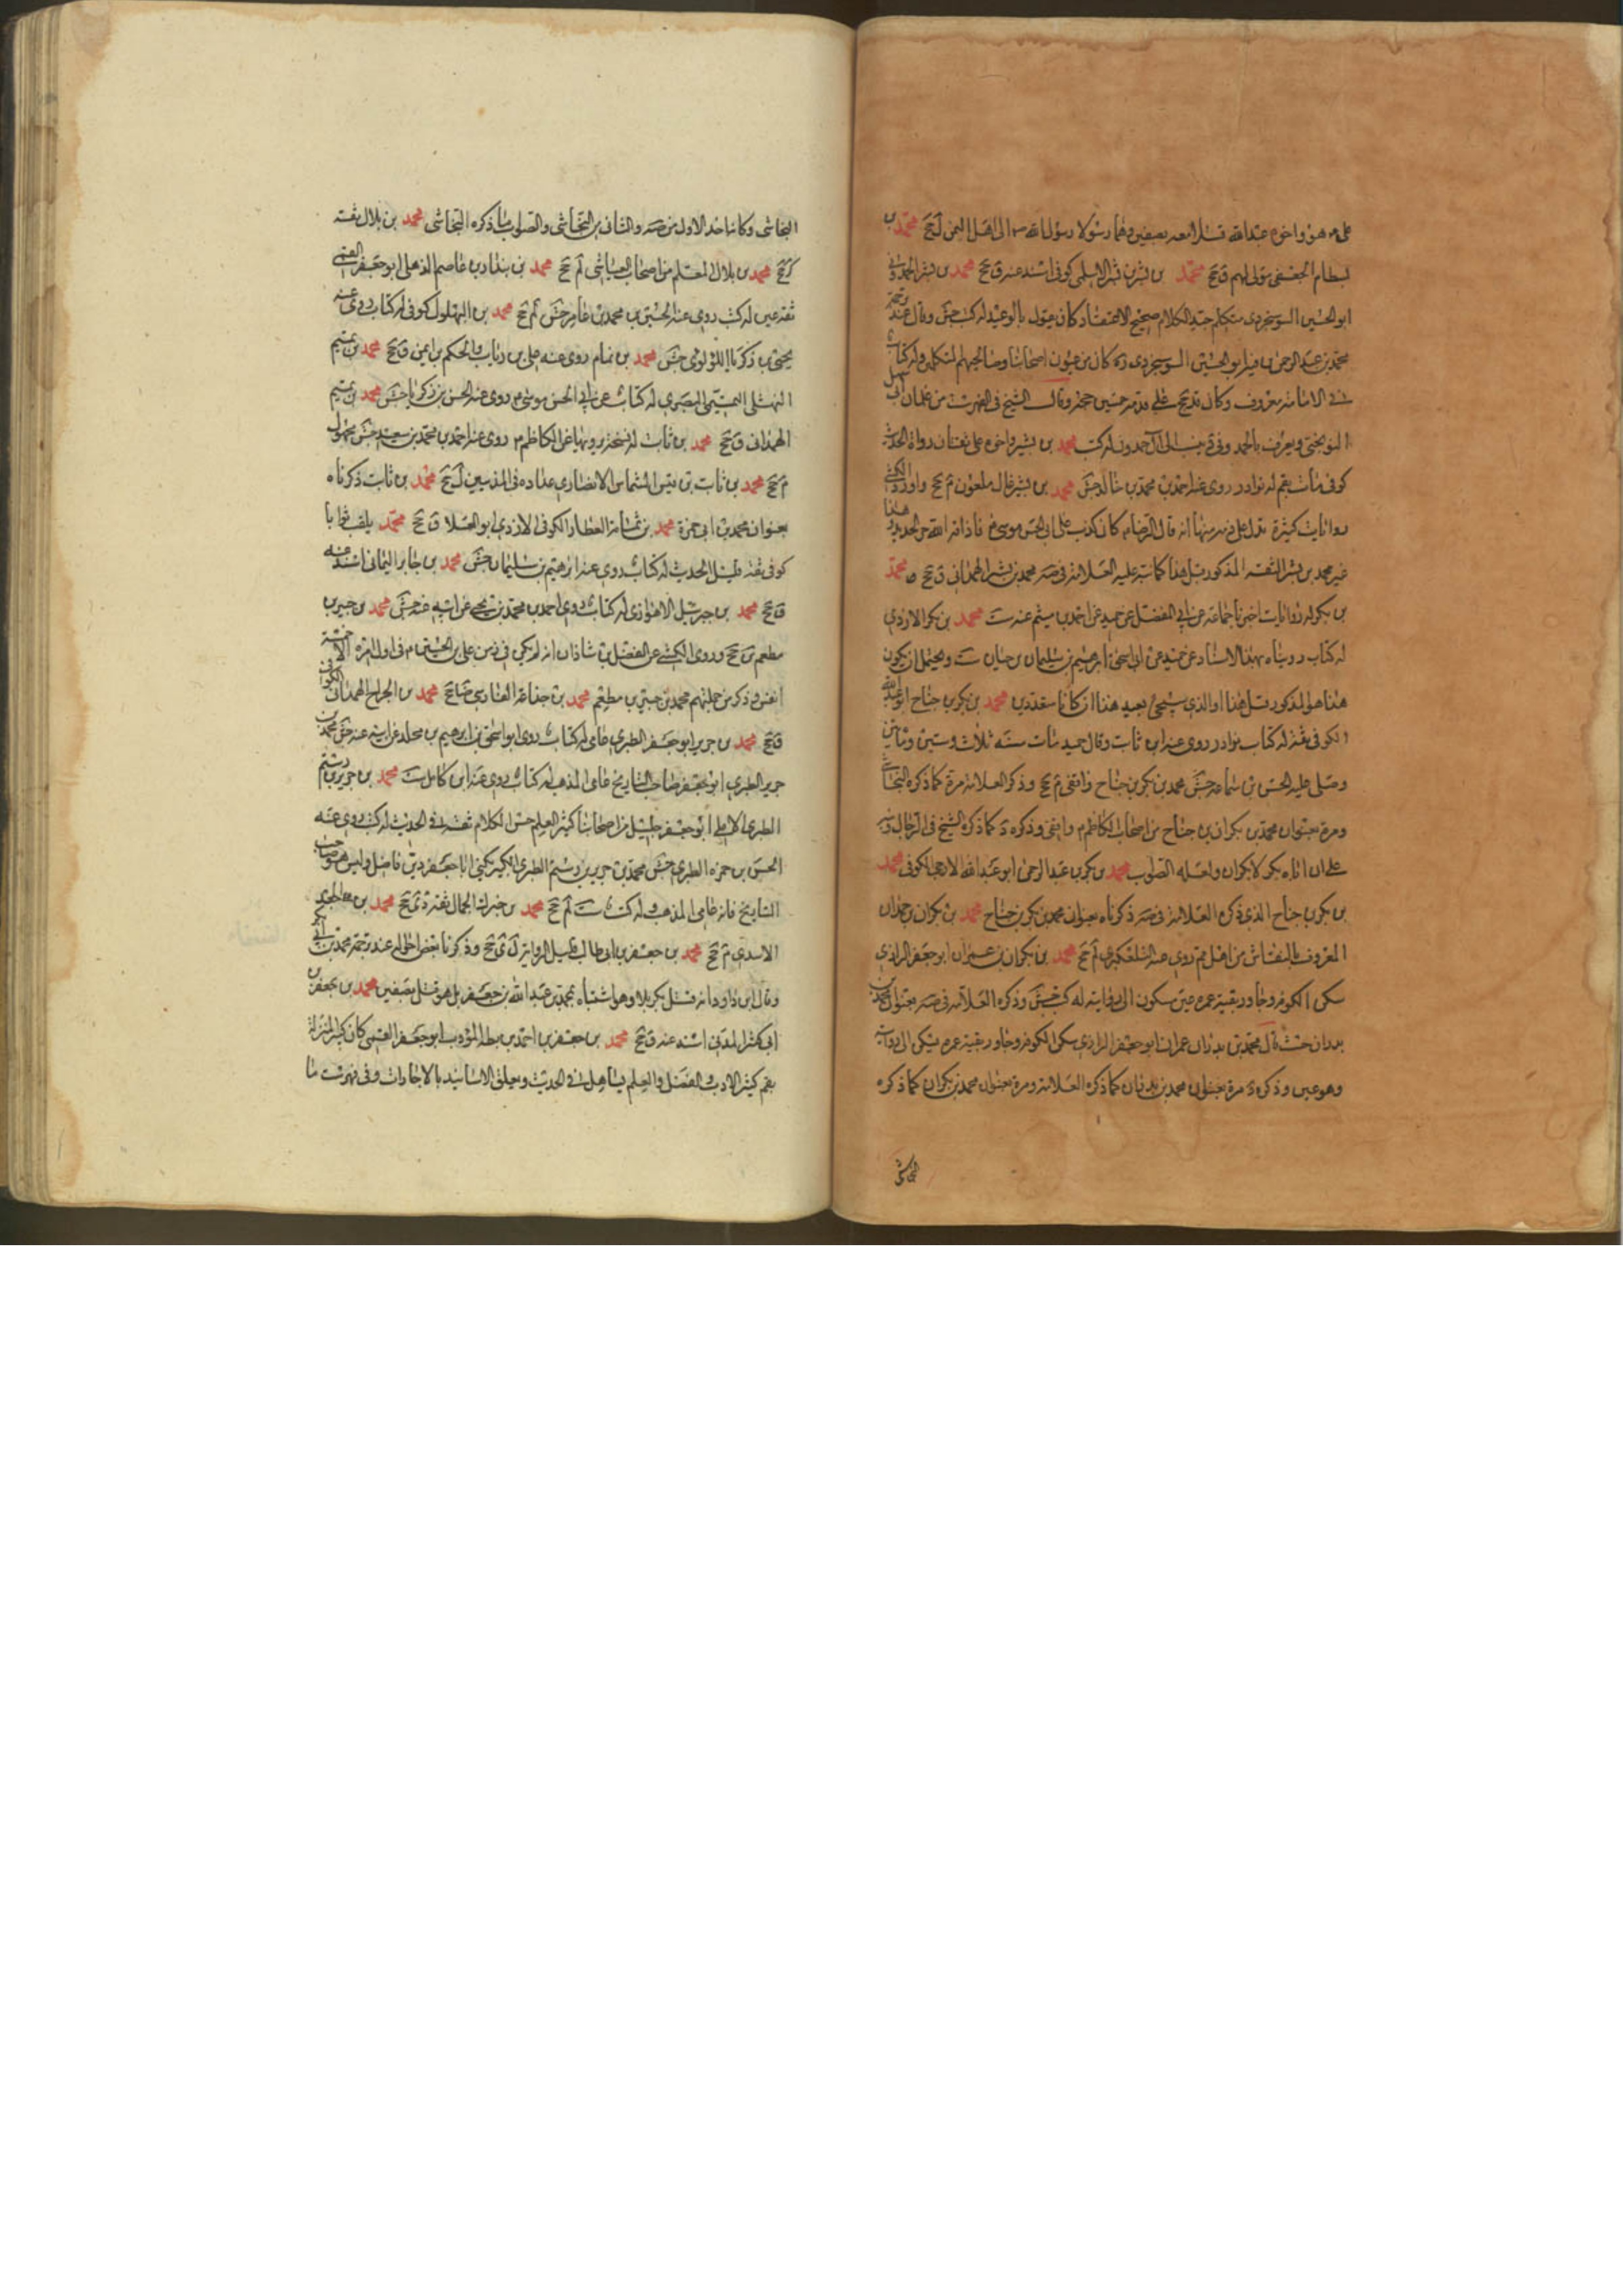 على م هو واخوه عبد الله قتلا معه بصفين وهما رسولا رسول الله ص الى اهل اليمن ل جخ محمد بن
بسطام الجعفى مولى لهم ق جخ محمد بن بشر بن بشر الاسلمى كوفى اسند عنه ق جخ محمد بن بشر الحمدونى
ابو الحسين السوسنجردى متكلم جيد الكلام صحيح الاعتقاد كان يقول بالوعيد له كتب جش وقال عند ترجمة
محمد بن عبد الرحمن بن قبة ابو الحسين السوسنجردى ره كان من عيون اصحابنا وصالحيهم المتكلمين وله كتاب
فى الامامة معروف وكان قد حج على قدميه خمسين حجة وقال الشيخ فى الفهرست من غلمان ابى سهل
النوبختى ويعرف بالحمدونى ينسب الى آل حمدون له كتب محمد بن بشير واخوه على ثقتان رواة الحديث
كوفى مات بقم له نوادر روى عنه احمد بن محمد بن خالد جش محمد بن بشير غال ملعون م جخ واورد الكشى
روايات كثيرة تدل على ذمه منها انه قال الرضا م كان يكذب على ابى الحسن موسى م فاذاقه الله حر الحديد وهذا
غير محمد بن بشير الثقة المذكور قبل هذا كما نبه عليه العلامة فى صه محمد بن بشر الهمدانى ق جخ محمد
بن بكر له روايات اخبرنا جماعة عن ابى المفضل عن حميد عن احمد بن ميثم عنه ست محمد بن بكر الازدى
له كتاب رويناه بهذا الاسناد عن حميد عن ابى اسحق ابرهيم بن سليمان بن حيان ست ويحتمل ان يكون
هذا هو المذكور قبل هذا او الذى سيجئ بعيد هذا ان كانا متعددين محمد بن بكر بن جناح ابو عبد الله
الكوفى ثقة له كتاب نوادر روى عنه ابن ثابت وقال حميد مات سنه ثلاث وستين ومأتين
وصلى عليه الحسن بن سماعة جش محمد بن بكر بن جناح واقفى م جخ وذكر العلامة مرة كما ذكره النجاشى
ومرة بعنوان محمد بن بكران بن جناح من اصحاب الكاظم م واقفى وذكره د كما ذكره الشيخ فى الرجال ونبه
على ان اباه بكر لا بكران ولعله الصواب محمد بن بكر بن عبد الرحمن ابو عبد الله الارحبى الكوفى محمد
بن بكر بن جناح الذى ذكره العلامة فى صه ذكرناه بعنوان محمد بن بكر بن جناح محمد بن بكران بن حمدان
المعروف بالنقاش من اهل قم روى عنه التلعكبرى لم جخ محمد بن بكران بن عمران ابو جعفر الرازى
سكن الكوفة وجاور بقية عمره عين مسكون الى روايته له كتب جش وذكره العلامة فى صه بعنوان محمد بن
بدران حيث قال محمد بن بدران بن عمران ابو جعفر الرازى سكن الكوفة وجاور بقية عمره يسكن الى روايته
وهو عين وذكره د مرة بعنوان محمد بن بدران كما ذكره العلامة ومرة بعنوان محمد بن بكران كما ذكره
النجاشى
النجاشى وكانه اخذ الاول من صه والثانى من النجاشى والصواب ما ذكره النجاشى محمد بن بلال ثقة
كر جخ محمد بن بلال المعلم من اصحاب العياشى لم جخ محمد بن بندار بن عاصم الذهلى ابو جعفر القمى
ثقة عين له كتب روى عنه الحسين بن محمد بن عامر جش لم جخ محمد بن البهلول كوفى له كتاب روى عنه
يحيى بن زكريا اللؤلؤى جش محمد بن تمام روى عنه على بن رئاب والحكم بن ايمن ق جخ محمد بن تميم
النهشلى التميمى البصرى له كتاب عن ابى الحسن موسى م روى عنه الحسن بن زكريا جش محمد بن تميم
الهمدانى ق جخ محمد بن ثابت له نسخة يرويها عن الكاظم م روى عنه احمد بن محمد بن سعيد جش مجهول
م جخ محمد بن ثابت بن قيس الشماس الانصارى عداده فى المدنيين ل جخ محمد بن ثابت ذكرناه
بعنوان محمد بن ابى حمزة محمد بن ثمامة العطار الكوفى الازدى ابو العلا ق جخ محمد يلقب ثوابا
كوفى ثقة قليل الحديث له كتاب روى عنه ابرهيم بن سليمان جش محمد بن جابر اليمانى اسند عنه
ق جخ محمد بن جبرئيل الاهوازى له كتاب روى احمد بن محمد بن يحيى عن ابيه عنه جش محمد بن جبير بن
مطعم ين جخ وروى الكشى عن الفضل بن شاذان انه لم يكن فى زمن على بن الحسين م فى اول امره الا خمسة
انفس وذكر من جملتهم محمد بن جبير بن مطعم محمد بن جذاعة الفارسى ضا جخ محمد بن الجراح الهمدانى الكوفى
ق جخ محمد بن جرير ابو جعفر الطبرى عامى له كتاب روى ابو اسحق بن ابرهيم بن مخلد عن ابيه عنه جش محمد بن
جرير الطبرى ابو جعفر صاحب التاريخ عامى المذهب له كتاب روى عنه ابن كامل ست محمد بن جرير بن رستم
الطبرى الاملى ابو جعفر جليل من اصحابنا كثير العلم حسن الكلام ثقة فى الحديث له كتب روى عنه
الحسن بن حمزه الطبرى جش محمد بن جرير بن رستم الطبرى الكبير يكنى ابا جعفر دين فاضل وليس هو صاحب
التاريخ فانه عامى المذهب وله كتب ست لم جخ محمد بن جزك الجمال ثقة دى جخ محمد بن
الاسدى م جخ محمد بن جعفر بن ابى طالب قليل الرواية ل ى جخ وذكرنا بعض احواله عند ترجمة محمد بن ابى بكر
وقال ابن داود انه قتل بكربلا وهو اشتباه بمحمد بن عبد الله بن جعفر بل هو قتل بصفين محمد بن جعفر بن
ابى كثير المدنى اسند عنه ق جخ محمد بن جعفر بن احمد بن بطة المؤدب ابو جعفر القمى كان كبير المنزلة
بقم كثير الادب والفضل والعلم يتساهل فى الحديث ويعلق الاسانيد بالاجازات وفى فهرست ما